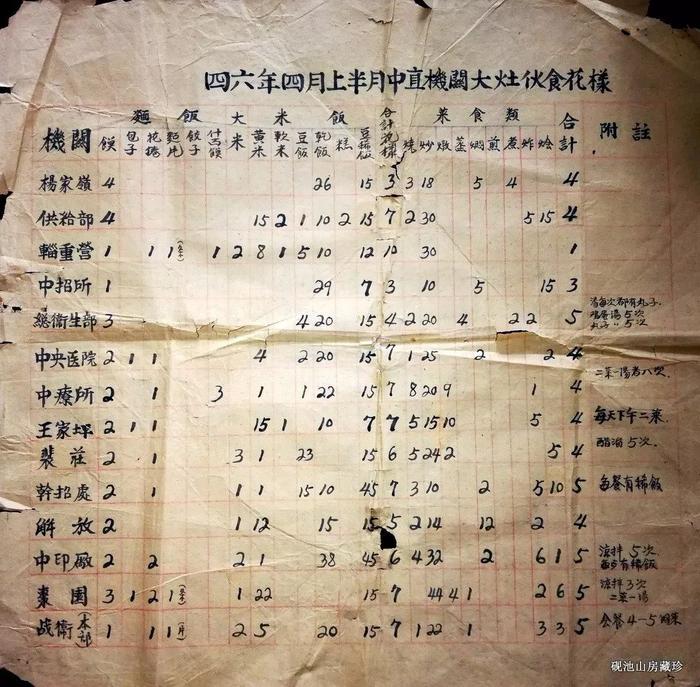 四六年四月上半月中直機關大灶伙食花樣
麵飯 大米飯 合計花樣 菜食類 合計 附註
機關 饃 包子 花捲 麵片 餃子 什面饃 大米 黃米 軟米 豆飯 乾飯 糕 豆稀飯 燒 炒 燉 蒸 煎 煮 炸 燴
楊家嶺 4 26 15 3 3 18 5 4 4
供給部 4 15 2 1 10 2 15 7 2 30 5 15 4
輜重營 1 1 1 1 2 8 1 5 10 12 10 30 1
中招所 1 29 7 3 10 5 15 3
總衛生部 3 4 20 15 4 2 20 4 2 2 5 湯每次都有丸子 鸡蛋湯5次 丸子〃5次
中央医院 2 1 1 4 2 20 15 7 1 25 2 2 4 二菜一湯者八次
中療所 2 1 3 1 1 22 15 7 8 20 9 1 4
王家坪 2 1 1 15 1 10 7 7 5 15 10 5 4 每天下午二菜
裴莊 2 1 3 1 23 15 6 5 24 2 5 4 醋湯5次
幹招處 2 1 1 1 15 10 45 7 3 10 2 5 10 5 每餐有稀飯
解放 2 1 12 15 15 5 2 14 12 2 4
中印厰 2 2 2 1 38 45 6 4 32 2 6 1 5 涼拌5次 有稀飯
棗園 3 1 2 1 1 22 15 7 44 4 1 2 6 5 涼拌3次 二菜一湯
战衛(本部) 1 1 1 2 5 20 15 7 1 22 1 3 3 5 会餐4-5
砚池山房藏珍